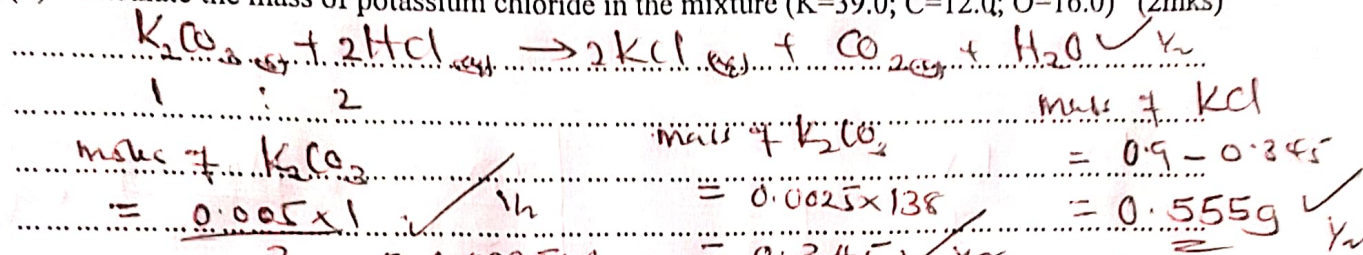 the mass of potassium chloride in the mixture (K=39.0; C=12.0; O=16.0) (2mks)
K₂CO₃(s) + 2HCl(aq) → 2KCl(aq) + CO₂(g) + H₂O ✓ ½
1 : 2
moles of K₂CO₃
= 0.005×1 ✓ ½
2
mass of K₂CO₃
= 0.0025×138
= 0.345 ✓
mass of KCl
= 0.9 - 0.345
= 0.555g ✓ ½